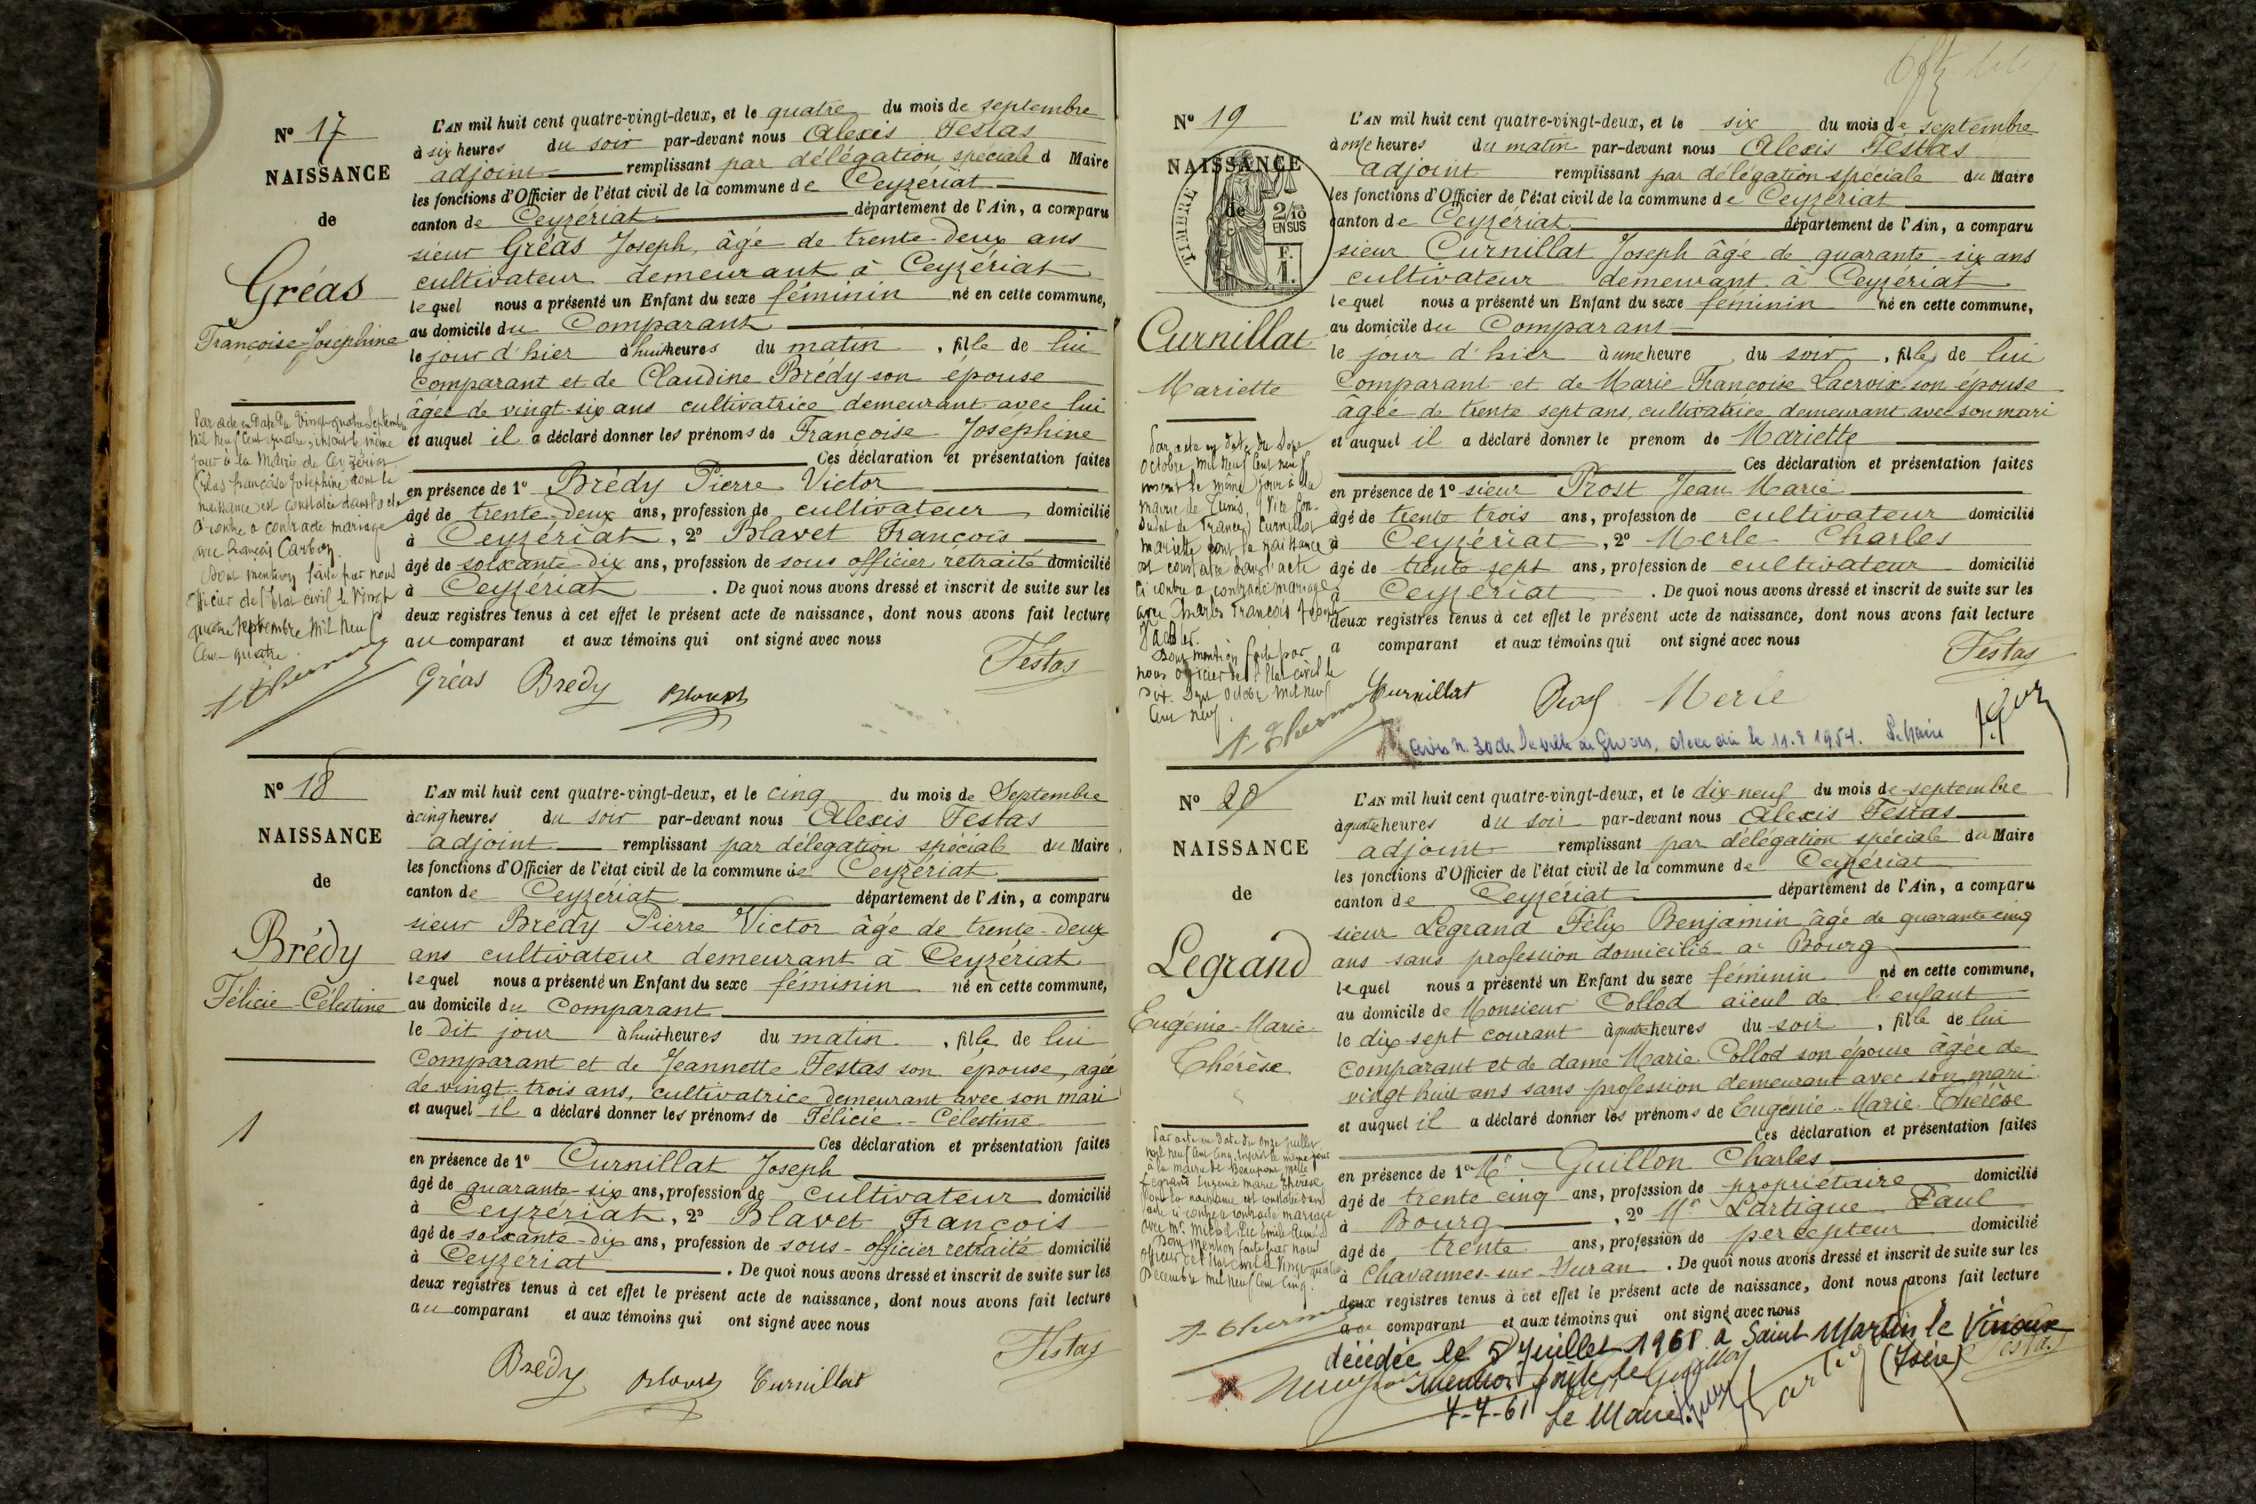 N° 17
NAISSANCE
de
Gréas
Françoise-Joséphine
Par acte en date du vingt-quatre Septembre
mil neuf cent quatre, inscrit le même
jour à la Mairie de Ceyzériat
Gréas françoise Joséphine dont la
naissance est constatée dans l'acte
ci-contre a contracté mariage
avec françois Carboz.
Dont mention faite par nous
officier de l'Etat civil le vingt
quatre septembre mil neuf
cent-quatre.
L'AN mil huit cent quatre-vingt-deux, et le quatre du mois de septembre
à six heures du soir par-devant nous Alexis Festas
adjoint remplissant par délégation spéciale d Maire
les fonctions d'Officier de l'état civil de la commune de Ceyzériat
canton de Ceyzériat département de l'Ain, a comparu
sieur Gréas Joseph, âgé de trente-deux ans
cultivateur demeurant à Ceyzériat
lequel nous a présenté un Enfant du sexe féminin né en cette commune,
au domicile du Comparant
le jour d'hier à huit heures du matin, fille de lui
Comparant et de Claudine Brédy son épouse
âgée de vingt-six ans cultivatrice demeurant avec lui
et auquel il a déclaré donner les prénoms de Françoise Josephine
Ces déclaration et présentation faites
en présence de 1° Brédy Pierre Victor
âgé de trente-deux ans, profession de cultivateur domicilié
à Ceyzériat, 2° Blavet François
âgé de soixante-dix ans, profession de sous officier retraité domicilié
à Ceyzériat. De quoi nous avons dressé et inscrit de suite sur les
deux registres tenus à cet effet le présent acte de naissance, dont nous avons fait lecture
au comparant et aux témoins qui ont signé avec nous
Gréas Bredy Blavet Festas
N° 18
NAISSANCE
de
Brédy
Félicie Célestine
1
L'AN mil huit cent quatre-vingt-deux, et le cinq du mois de Septembre
à cinq heures du soir par-devant nous Alexis Festas
adjoint remplissant par délégation spéciale du Maire
les fonctions d'Officier de l'état civil de la commune de Ceyzériat
canton de Ceyzériat département de l'Ain, a comparu
sieur Brédy Pierre Victor âgé de trente-deux
ans cultivateur demeurant à Ceyzériat
lequel nous a présenté un Enfant du sexe féminin né en cette commune,
au domicile du comparant
le dit jour à huit heures du matin, fille de lui
Comparant et de Jeannette Festas son épouse, agée
de vingt-trois ans, cultivatrice demeurant avec son mari
et auquel il a déclaré donner les prénoms de Félicie-Célestine
Ces déclaration et présentation faites
en présence de 1° Curnillat Joseph
âgé de quarante-six ans, profession de cultivateur domicilié
à Ceyzériat, 2° Blavet François
âgé de soixante-dix ans, profession de sous-officier retraité domicilié
à Ceyzériat. De quoi nous avons dressé et inscrit de suite sur les
deux registres tenus à cet effet le présent acte de naissance, dont nous avons fait lecture
au comparant et aux témoins qui ont signé avec nous
Bredy Blavet Curnillat Festas
N° 19
NAISSANCE
de
TIMBRE
2/10
EN SUS
F.
1.
Curnillat
Mariette
Par acte en date du Seize
octobre mil neuf cent neuf
inscrit le même jour à la
mairie de Tunis, (Vice Con-
sulat de France) Curnillat
Mariette dont la naissance
est constatée dans l'acte
ci contre a contracté mariage
avec Charles François
Dont mention faite par
nous officier de l'Etat civil le
octobre mil neuf
cent neuf.
L'AN mil huit cent quatre-vingt-deux, et le six du mois de septembre
à onze heures du matin par-devant nous Alexis Festas
adjoint remplissant par délégation spéciale du Maire
les fonctions d'Officier de l'état civil de la commune de Ceyzériat
canton de Ceyzériat département de l'Ain, a comparu
sieur Curnillat Joseph âgé de quarante-six ans
cultivateur demeurant à Ceyzériat
lequel nous a présenté un Enfant du sexe féminin né en cette commune,
au domicile du Comparant
le jour d'hier à une heure du soir, fille de lui
Comparant et de Marie Françoise Lacroix son épouse
âgée de trente sept ans, cultivatrice demeurant avec son mari
et auquel il a déclaré donner le prenom de Mariette
Ces déclaration et présentation faites
en présence de 1° sieur Prost Jean Marie
âgé de trente trois ans, profession de cultivateur domicilié
à Ceyzériat, 2° Merle Charles
âgé de trente-sept ans, profession de cultivateur domicilié
à Ceyzériat. De quoi nous avons dressé et inscrit de suite sur les
deux registres tenus à cet effet le présent acte de naissance, dont nous avons fait lecture
a comparant et aux témoins qui ont signé avec nous
Curnillat Prost Merle Festas
avis n. 30 de la ville de Givors, décédée le 11.8 1954. Le Maire
N° 20
NAISSANCE
de
Legrand
Eugénie-Marie
Thérèse
Par acte en date du onze juillet
mil neuf cent cinq, inscrit le même jour
à la mairie de Beaupont Melle
Legrand Eugénie Marie Thérèse
dont la naissance est constatée dans
l'acte ci contre a contracté mariage
avec Mr.
Dont mention faite par nous
officier de l'Etat civil le vingt-quatre
Décembre mil neuf cent cinq.
L'AN mil huit cent quatre-vingt-deux, et le dix-neuf du mois de septembre
à quatre heures du soir par-devant nous Alexis Festas
adjoint remplissant par délégation spéciale du Maire
les fonctions d'Officier de l'état civil de la commune de Ceyzériat
canton de Ceyzériat département de l'Ain, a comparu
sieur Legrand Félix Benjamin âgé de quarante cinq
ans sans profession domicilié à Bourg
lequel nous a présenté un Enfant du sexe féminin né en cette commune,
au domicile de Monsieur Collod aïeul de l'enfant
le dix sept courant à quatre heures du soir, fille de lui
comparant et de dame Marie Collod son épouse âgée de
vingt huit ans sans profession demeurant avec son mari
et auquel il a déclaré donner les prénoms de Eugénie-Marie-Thérèse
Ces déclaration et présentation faites
en présence de 1° Mr Guillon Charles
âgé de trente cinq ans, profession de propriétaire domicilié
à Bourg, 2° Mr Lartigue Paul
âgé de trente ans, profession de percepteur domicilié
à Chavannes-sur-Suran. De quoi nous avons dressé et inscrit de suite sur les
deux registres tenus à cet effet le présent acte de naissance, dont nous avons fait lecture
au comparant et aux témoins qui ont signé avec nous
décédée le 5 Juillet 1961 à Saint Martin le Vinoux
(Isère) Festas
mention faite le
7-7-61 Le Maire